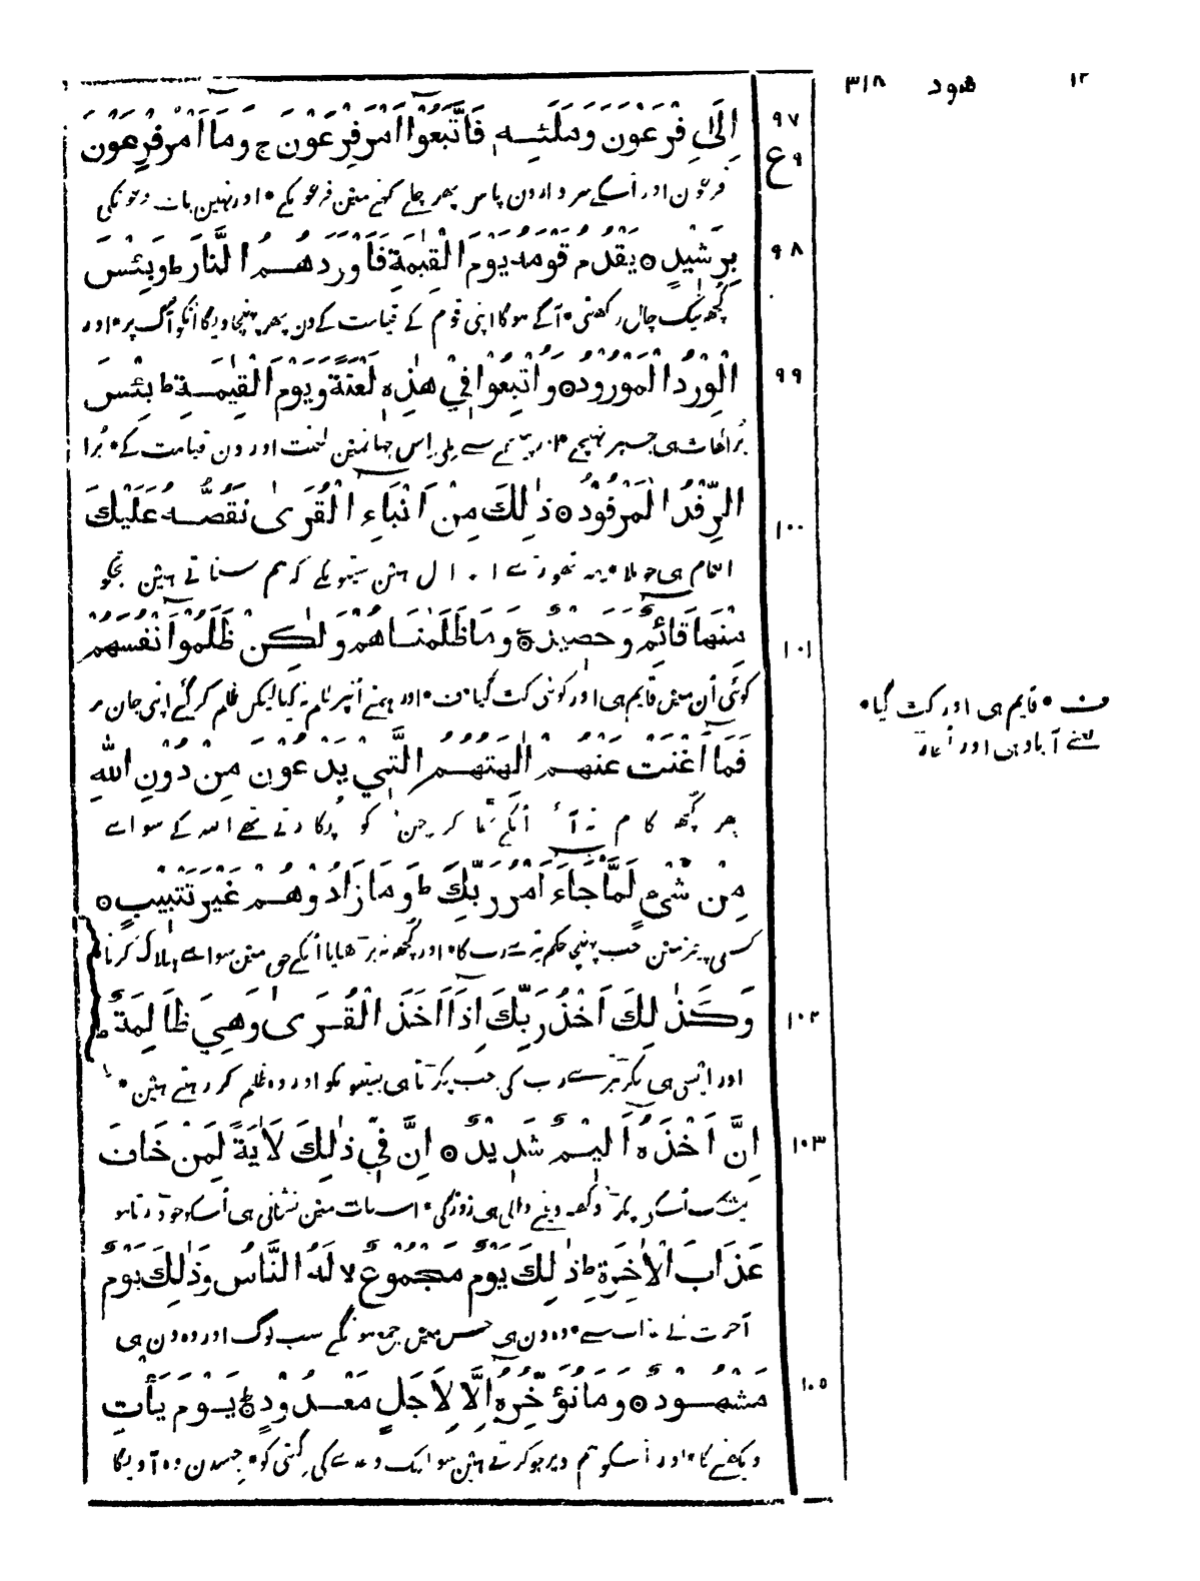 ١٢ هود ٣١٨
٩٧ اِلٰى فِرْعَوْنَ وَمَلَئِهٖ فَاتَّبَعُوْٓا اَمْرَ فِرْعَوْنَ ج وَمَآ اَمْرُ فِرْعَوْنَ
ع ٩
فرعون اور اُسکے سردارون پاس پھر چلے کہنے مین فرعونکے • اور نہین بات فرعونکی
٩٨ بِرَشِيْدٍ ۝ يَقْدُمُ قَوْمَهٗ يَوْمَ الْقِيٰمَةِ فَاَوْرَدَهُمُ النَّارَ ط وَبِئْسَ
کُچھ نیک چال رکھتی • آگے ہوگا اپنی قوم کے قیامت کے دن پھر پہنچاویگا اُنکو آگ پر • اور
٩٩ الْوِرْدُ الْمَوْرُوْدُ ۝ وَاُتْبِعُوْا فِيْ هٰذِهٖ لَعْنَةً وَّيَوْمَ الْقِيٰمَةِ ط بِئْسَ
بُرا گھاٹ ہی جسپر پہنچے • اور پیچھے سے ملی اِس جہان مین لعنت اور دن قیامت کے • بُرا
١٠٠ الرِّفْدُ الْمَرْفُوْدُ ۝ ذٰلِكَ مِنْ اَنْبَآءِ الْقُرٰى نَقُصُّهٗ عَلَيْكَ
انعام ہی جو ملا • یہ تھوڑے احوال ہین بستیونکے کہ ہم سناتے ہین تجکو
١٠١ مِنْهَا قَآئِمٌ وَّحَصِيْدٌ ۝ وَمَا ظَلَمْنٰهُمْ وَلٰكِنْ ظَلَمُوْٓا اَنْفُسَهُمْ
کوئی اُن مین قایم ہی اور کوئی کٹ گیا • ف • اور ہمنے اُنپر ظلم نہ کیا لیکن ظلم کر گئے اپنی جان پر
فَمَآ اَغْنَتْ عَنْهُمْ اٰلِهَتُهُمُ الَّتِيْ يَدْعُوْنَ مِنْ دُوْنِ اللّٰهِ
پھر کُچھ کام نہ آئے اُنکے ٹھاکر جن کو پُکارتے تھے اللہ کے سواے
مِنْ شَيْءٍ لَّمَّا جَآءَ اَمْرُ رَبِّكَ ط وَمَا زَادُوْهُمْ غَيْرَ تَتْبِيْبٍ ۝
کسی چیز مین جب پہنچا حکم تیرے رب کا • اور کُچھ نہ بڑھایا اُنکے حق مین سواے ہلاک کرنا
١٠٢ وَكَذٰلِكَ اَخْذُ رَبِّكَ اِذَآ اَخَذَ الْقُرٰى وَهِيَ ظَالِمَةٌ ط
اور ایسی ہی پکڑ تیرے رب کی جب پکڑتا ہی بستیونکو اور وہ ظلم کر رہتے ہین •
١٠٣ اِنَّ اَخْذَهٗٓ اَلِيْمٌ شَدِيْدٌ ۝ اِنَّ فِيْ ذٰلِكَ لَاٰيَةً لِّمَنْ خَافَ
بیشک اُسکی پکڑ دُکھ دینے والی ہی زور کی • اس بات مین نشانی ہی اُسکو جو ڈرتا ہو
عَذَابَ الْاٰخِرَةِ ط ذٰلِكَ يَوْمٌ مَّجْمُوْعٌ لا لَّهُ النَّاسُ وَذٰلِكَ يَوْمٌ
آخرت کے عذاب سے • وہ دن ہی جس مین جمع ہونگے سب لوگ اور وہ دن ہی
١٠٥ مَّشْهُوْدٌ ۝ وَمَا نُؤَخِّرُهٗٓ اِلَّا لِاَجَلٍ مَّعْدُوْدٍ ۝ يَوْمَ يَاْتِ
دیکھنے کا • اور اُسکو ہم دیر جو کرتے ہین سو ایک وعدے کی گنتی کو • جسدن وہ آویگا
ف • قایم ہی اور کٹ گیا •
یعنے آباد ہی اور